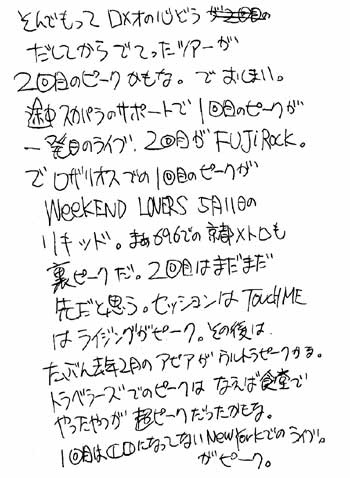 そんでもって DXオの心どう
だしてからでてったツアーが
2回目のピークかもな。で おしまい。
途中スカパラのサポートで 1回目のピークが
一発目のライブ、2回目が FUJiROCK。
で ロザリオスでの1回目のピークが
WEEKEND LOVERS 5月11日の
リキッド。まぁ 696での 京都メトロも
裏ピークだ。2回目はまだまだ
先だと思う。セッションは TOUCHME
はライジングがピーク。その後は、
たぶん去年2月のアピアがウルトラピークかな。
トラベラーズでのピークは なえば食堂で
やったやつが 超ピークだったかもな。
1回目はCDになってないNEWYORKでのライブ。
がピーク。